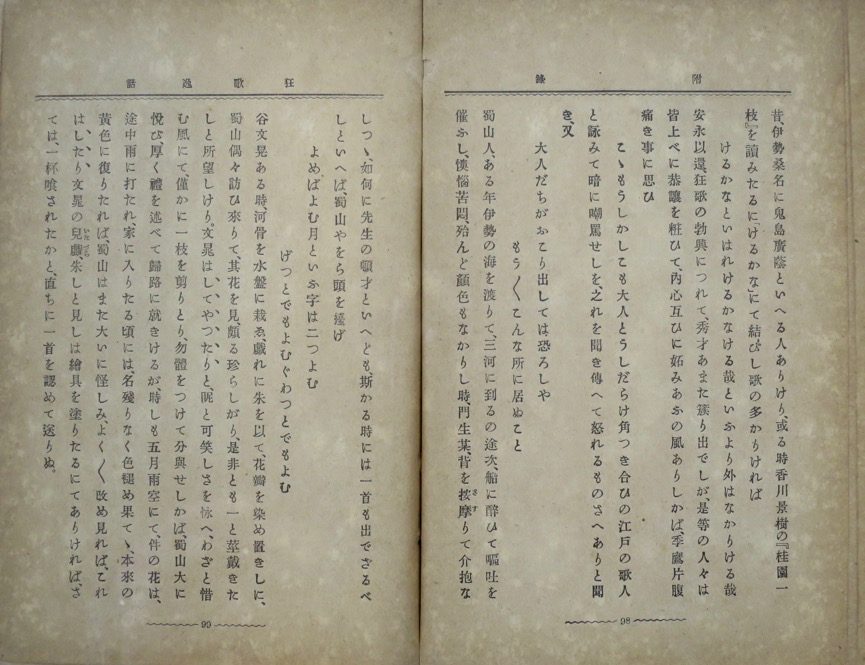 附錄
昔、伊勢桑名に鬼島廣蔭といへる人ありけり、或る時香川景樹の『桂園一
枝』を讀みたるにけるかな』にて結びし歌の多かりければ
けるかなといはれけるかなける哉といふより外はなかりける哉
安永以還、狂歌の勃興につれて、秀才あまた簇り出でしが、是等の人々は
皆上べに恭讓を粧ひて、內心互ひに妬みあふの風ありしかば、季鷹片腹
痛き事に思ひ
こゝもうしかしこも大人とうしだらけ角つき合ひの江戶の歌人
と詠みて暗に嘲罵せしを、之れを聞き傳へて怒れるものさへありと聞
き、又
大人だちがおこり出しては恐ろしや
もう〳〵こんな所に居ぬこと
蜀山人、ある年伊勢の海を渡りて、三河に到るの途次、船に醉ひて嘔吐を
催ふし、懊惱苦悶、殆んど顏色もなかりし時、門生某、背を按摩りて介抱な
98
狂歌逸話
しつゝ、如何に先生の頓才といへども、斯かる時には一首も出でざるべ
しといへば、蜀山やをら頭を擡げ
よめばよむ月といふ字は二つよむ
げつとでもよむぐわつとでもよむ
谷文晁ある時、河骨を水盤に栽ゑ、戲れに朱を以て、花瓣を染め置きしに、
蜀山偶々訪ひ來りて、其花を見、頗る珍らしがり、是非とも一と莖戴きた
しと所望しけり。文晁は、してやつたりと、呢と可笑しさを怺へ、わざと惜
む風にて僅かに一枝を剪りとり、勿體をつけて分與せしかば、蜀山大に
悅び、厚く禮を述べて歸路に就きけるが、時しも五月雨空にて、件の花は、
途中雨に打たれ、家に入りたる頃には、名殘りなく色褪め果てゝ、本來の
黃色に復りたれば、蜀山はまた大いに怪しみ、よく〳〵改め見れば、これ
はしたり文晁の兒戲、朱しと見しは繪具を塗りたるにてありければ、さ
ては、一杯喰されたかと、直ちに一首を認めて送りぬ。
99